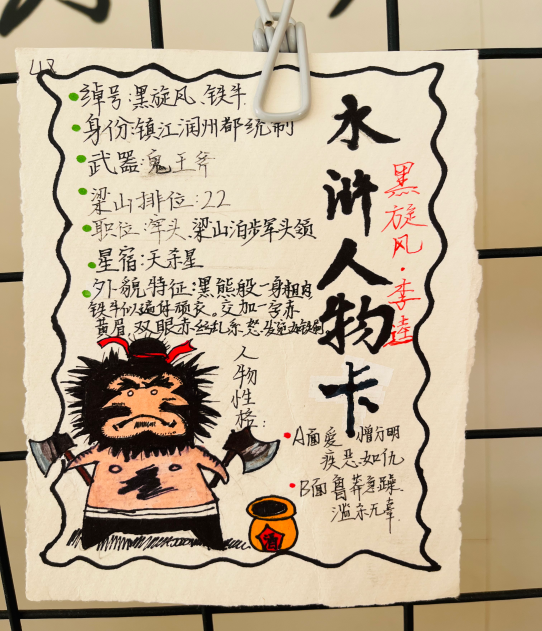 绰号:黑旋风、铁牛
身份:镇江润州都统制
武器:鬼王斧
梁山排位:22
职位:军头、梁山泊步军头领
星宿:天杀星
外貌特征:黑熊般一身粗肉
铁牛似遍体顽皮。交加一字赤
黄眉,双眼赤丝乱系。怒发
人物性格:
A面爱憎分明
疾恶如仇
B面鲁莽急躁
滥杀无辜
酒
水浒人物卡
黑旋风·李逵